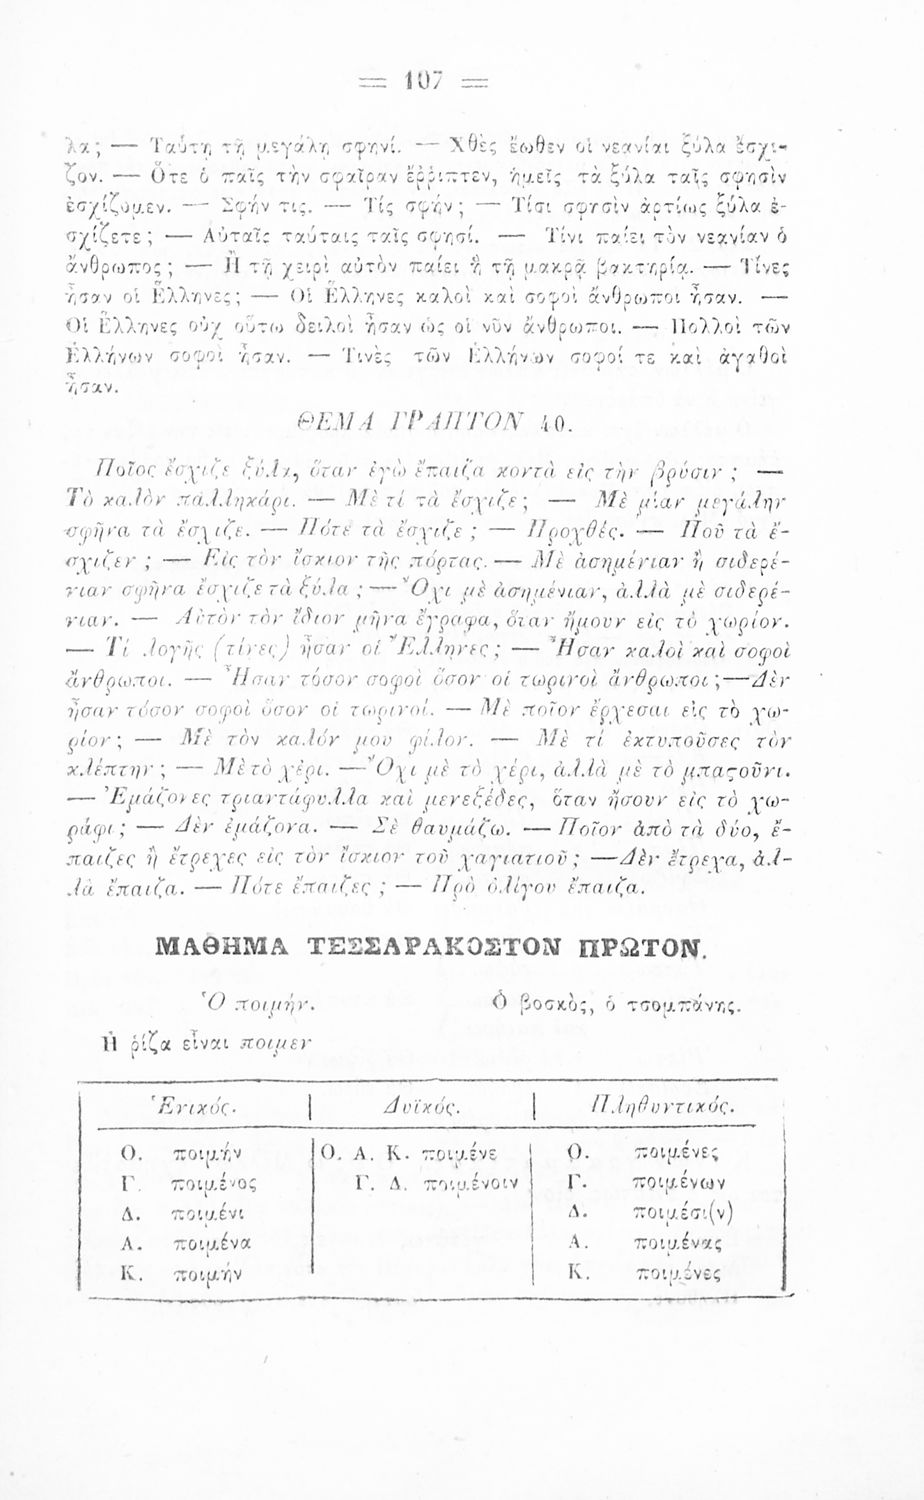 = 107 =
λα; — Ταύτῃ τῇ μεγάλῃ σφηνί. — Χθὲς ἕωθεν οἱ νεανίαι ξύλα ἔσχι-
ζον. — Ὅτε ὁ παῖς τὴν σφαῖραν ἔῤῥιπτεν, ἡμεῖς τὰ ξύλα ταῖς σφησὶν
ἐσχίζομεν. — Σφήν τις. — Τίς σφήν; — Τίσι σφησὶν ἀρτίως ξύλα ἐ-
σχίζετε; — Αὐταῖς ταύταις ταῖς σφησί. — Τίνι παίει τὸν νεανίαν ὁ
ἄνθρωπος; — Ἢ τῇ χειρὶ αὐτὸν παίει ἢ τῇ μακρᾷ βακτηρίᾳ. — Τίνες
ἦσαν οἱ Ἕλληνες; — Οἱ Ἕλληνες καλοὶ καὶ σοφοὶ ἄνθρωποι ἦσαν. —
Οἱ Ἕλληνες οὐχ οὕτω δειλοὶ ἦσαν ὡς οἱ νῦν ἄνθρωποι. — Πολλοὶ τῶν
Ἑλλήνων σοφοὶ ἦσαν. — Τινὲς τῶν Ἑλλήνων σοφοί τε καὶ ἀγαθοὶ
ἦσαν.
ΘΕΜΑ ΓΡΑΠΤΟΝ 40.
Ποῖος ἔσχιζε ξύλα, ὅταν ἐγὼ ἔπαιζα κοντὰ εἰς τὴν βρύσιν; —
Τὸ καλὸν παλληκάρι. — Μὲ τί τὰ ἔσχιζε; — Μὲ μίαν μεγάλην
σφῆνα τὰ ἔσχιζε. — Πότε τὰ ἔσχιζε; — Προχθές. — Ποῦ τὰ ἔ-
σχιζεν; — Εἰς τὸν ἴσκιον τῆς πόρτας. — Μὲ ἀσημένιαν ἢ σιδερέ-
νιαν σφῆνα ἔσχιζε τὰ ξύλα; — Ὄχι μὲ ἀσημένιαν, ἀλλὰ μὲ σιδερέ-
νιαν. — Αὐτὸν τὸν ἴδιον μῆνα ἔγραφα, ὅταν ἤμουν εἰς τὸ χωρίον.
— Τί λογῆς (τίνες) ἦσαν οἱ Ἕλληνες; — Ἦσαν καλοὶ καὶ σοφοὶ
ἄνθρωποι. — Ἦσαν τόσον σοφοὶ ὅσον οἱ τωρινοὶ ἄνθρωποι; — Δὲν
ἦσαν τόσον σοφοὶ ὅσον οἱ τωρινοί. — Μὲ ποῖον ἔρχεσαι εἰς τὸ χω-
ρίον; — Μὲ τὸν καλόν μου φίλον. — Μὲ τί ἐκτυποῦσες τὸν
κλέπτην; — Μὲ τὸ χέρι. — Ὄχι μὲ τὸ χέρι, ἀλλὰ μὲ τὸ μπαστοῦνι.
— Ἐμάζονες τριαντάφυλλα καὶ μενεξέδες, ὅταν ἤσουν εἰς τὸ χω-
ράφι; — Δὲν ἐμάζονα. — Σὲ θαυμάζω. — Ποῖον ἀπὸ τὰ δύο, ἔ-
παιζες ἢ ἔτρεχες εἰς τὸν ἴσκιον τοῦ χαγιατιοῦ; — Δὲν ἔτρεχα, ἀλ-
λὰ ἔπαιζα. — Πότε ἔπαιζες; — Πρὸ ὀλίγου ἔπαιζα.
ΜΑΘΗΜΑ ΤΕΣΣΑΡΑΚΟΣΤΟΝ ΠΡΩΤΟΝ.
Ὁ ποιμήν. Ὁ βοσκὸς, ὁ τσομπάνης.
Ἡ ῥίζα εἶναι ποιμεν
Ἑνικός. Δυϊκός. Πληθυντικός.
Ο. ποιμήν Ο. Α. Κ. ποιμένε Ο. ποιμένες
Γ. ποιμένος Γ. Δ. ποιμένοιν Γ. ποιμένων
Δ. ποιμένι Δ. ποιμέσι(ν)
Α. ποιμένα Α. ποιμένας
Κ. ποιμήν Κ. ποιμένες